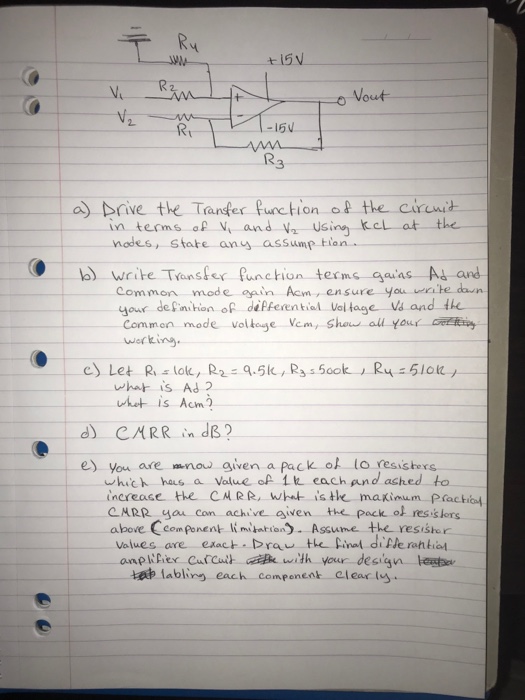 R4
+15V
V1 R2 + Vout
V2 R1 - -15V
R3
a) Drive the Transfer function of the circuit
in terms of V1 and V2 Using KCL at the
nodes, State any assumption.
b) write Transfer function terms gains Ad and
Common mode gain Acm, ensure you write down
your definition of differential Voltage Vd and the
Common mode voltage Vcm, Show all your
working.
c) Let R1 = 10k, R2 = 9.5k, R3 = 500k, R4 = 510k,
what is Ad?
what is Acm?
d) CMRR in dB?
e) you are now given a pack of 10 resistors
which has a value of 1k each and asked to
increase the CMRR, what is the maximum practical
CMRR you can achive given the pack of resistors
above (component limitation). Assume the resistor
values are exact. Draw the final differantial
amplifier curcuit with your design
labling each component clearly.